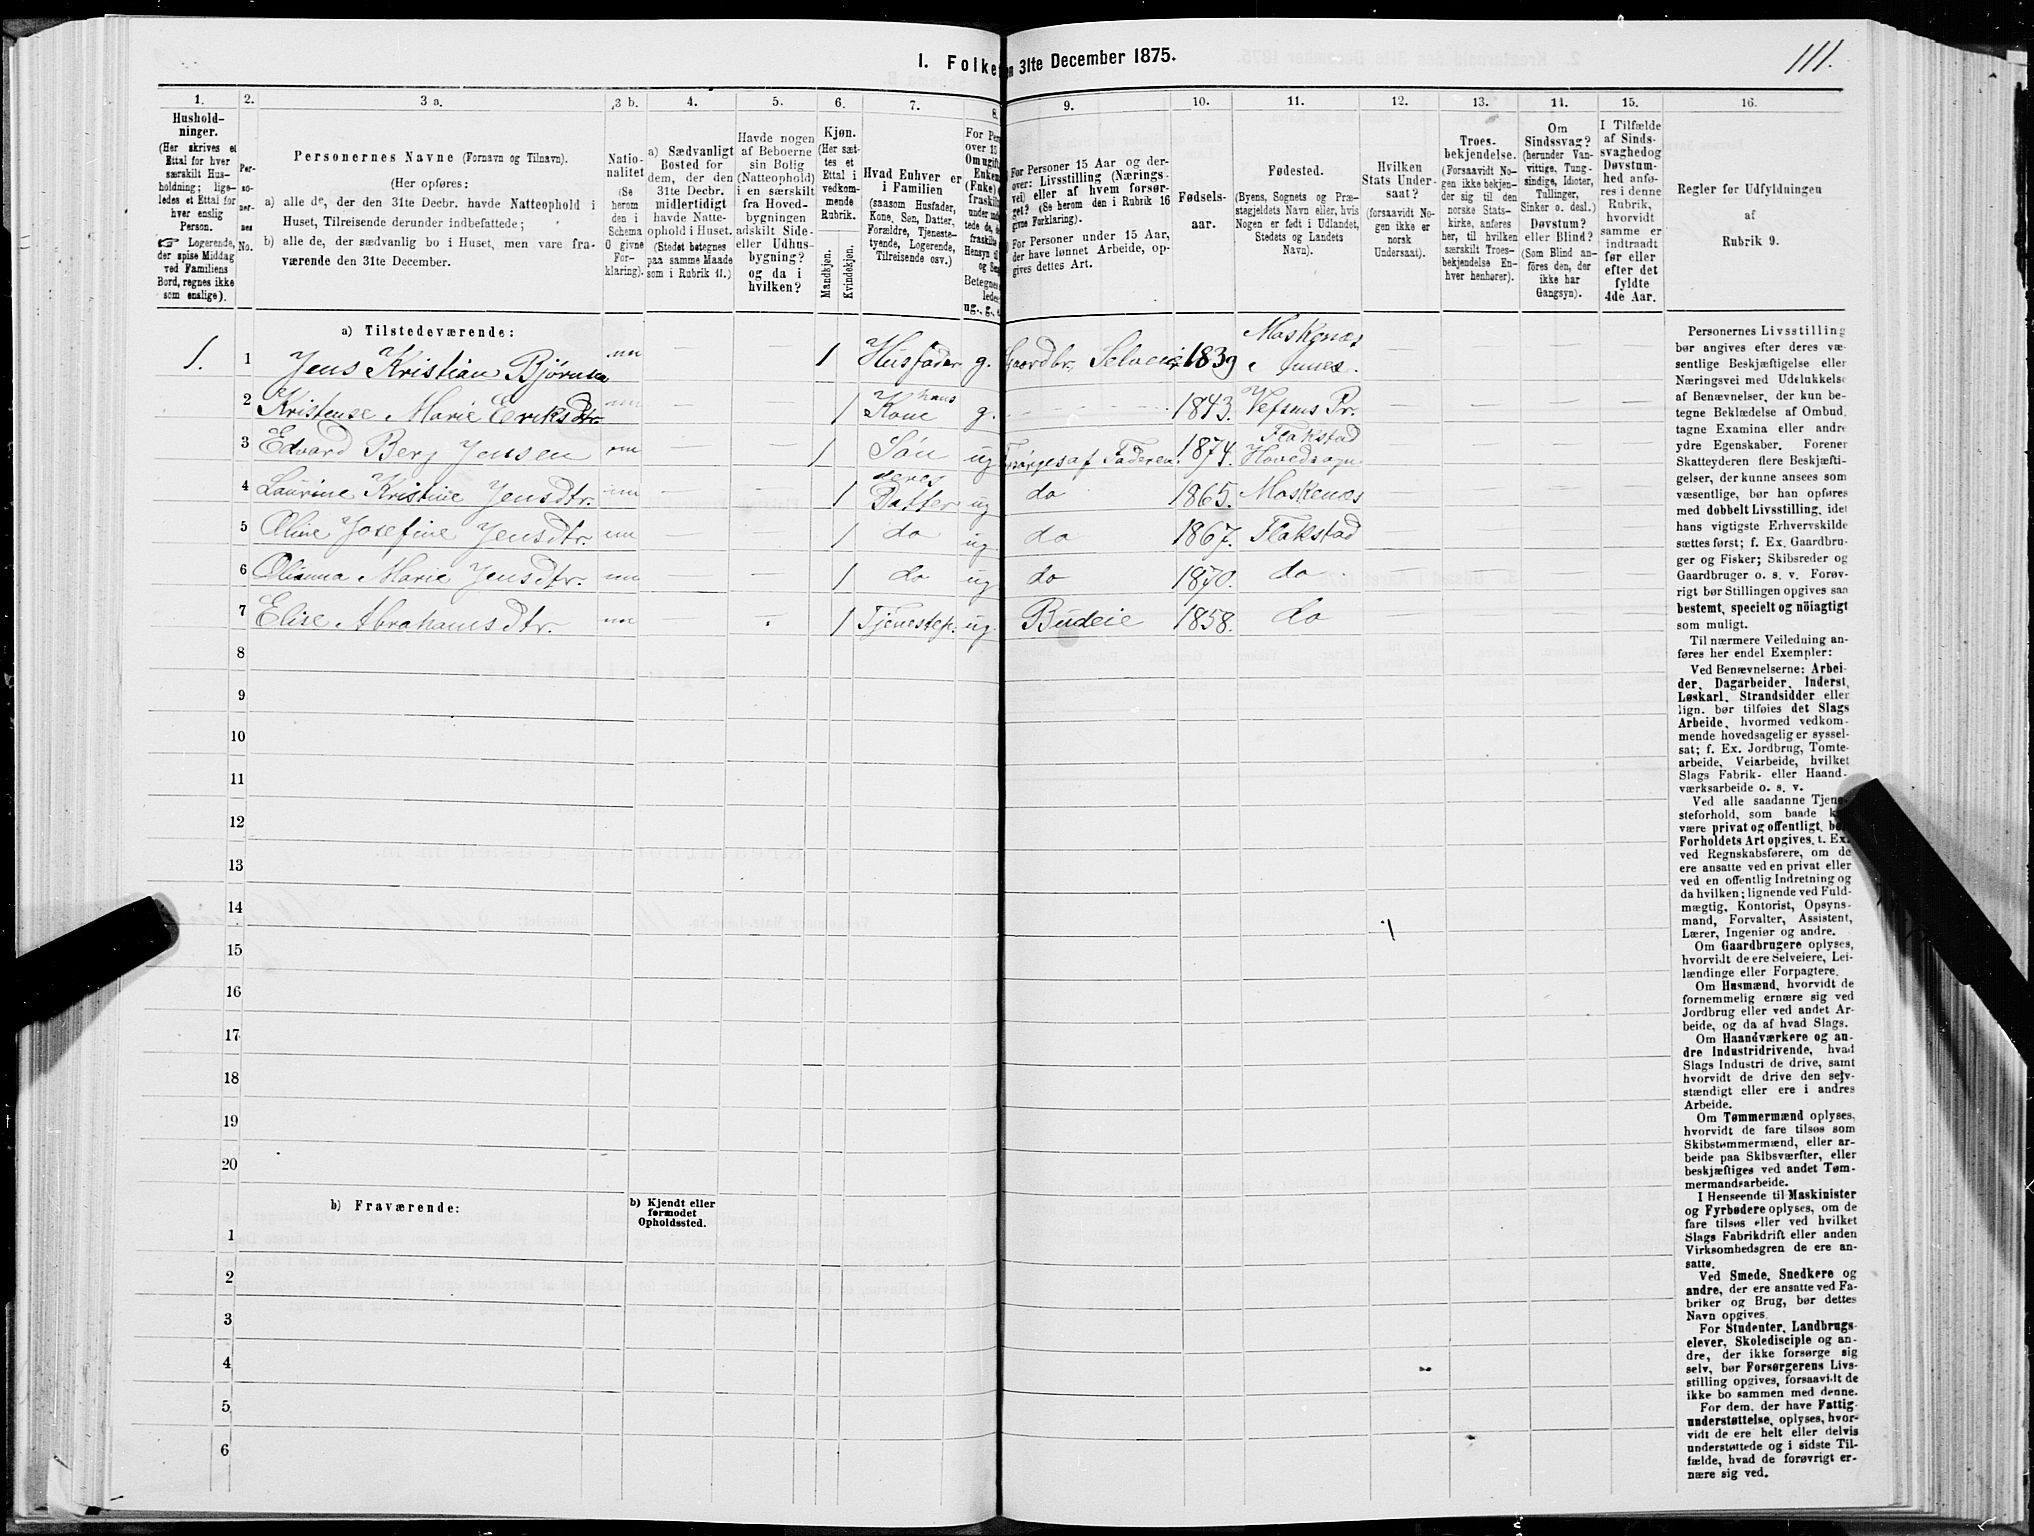 111.
1. Folke
en 31te December 1875.
1. 2. 3 a. 3 b. 4. 5. 6. 7. 8. 9. 10. 11. 12. 13. 14. 15. 16.
Hushold-
ninger.
(Her skrives et
Ettal for hver
særskilt Hus-
holdning; lige-
ledes et Ettal for
hver enslig
Person.
☞ Logerende,
der spise Middag
ved Familiens
Bord, regnes ikke
som enslige).
Per-
so-
ner-
nes
No.
Personernes Navne (Fornavn og Tilnavn).
(Her opføres:
a) alle de, der den 31te Decbr. havde Natteophold i
Huset, Tilreisende derunder indbefattede;
b) alle de, der sædvanlig bo i Huset, men vare fra-
værende den 31te December.
Natio-
nalitet
(Se
herom
den i
Schema
O givne
For-
klaring).
a) Sædvanligt
Bosted for
dem, der den
31te Decbr.
midlertidigt
havde Natte-
ophold i Huset.
(Stedet betegnes
paa samme Maade
som i Rubrik 11.)
Havde nogen
af Beboerne
sin Bolig
(Natteophold)
i en særskilt
fra Hoved-
bygningen
adskilt Side-
eller Udhus-
bygning?
og da i
hvilken?
Kjøn.
(Her sæt-
tes et
Ettal i
vedkom-
mende
Rubrik.
Mandkjøn.
Kvindekjøn.
Hvad Enhver er
i Familien
(saasom Husfader,
Kone, Søn, Datter,
Forældre, Tjeneste-
tyende, Logerende,
Tilreisende osv.)
For Per
over 15
Om ugift
Enkem
(Enke)
fraskilt
ug., g.,
For Personer 15 Aar og der-
over: Livsstilling (Nærings-
vei) eller af hvem forsør-
get? (Se herom den i Rubrik 16
givne Forklaring).
For Personer under 15 Aar,
der have lønnet Arbeide, op-
gives dettes Art.
Fødsels-
aar.
Fødested.
(Byens, Sognets og Præ-
stegjeldets Navn eller, hvis
Nogen er født i Udlandet,
Stedets og Landets
Navn).
Hvilken
Stats Under-
saat?
(forsaavidt No-
gen ikke er
norsk
Undersaat).
Troes-
bekjendelse.
(Forsaavidt No-
gen ikke bekjen-
der sig til den
norske Stats-
kirke, anføres
her, til hvilken
særskilt Troes-
bekjendelse En-
hver henhører).
Om
Sindssvag?
(herunder Van-
vittige, Tung-
sindige, Idioter,
Tullinger,
Sinker o. desl.)
Døvstum?
eller Blind?
(Som Blind an-
føres den, der
ikke har
Gangsyn).
I Tilfælde
af Sinds-
svaghed og
Døvstum-
hed anfø-
res i denne
Rubrik,
hvorvidt
samme er
indtraadt
før eller
efter det
fyldte
4de Aar.
Regler for Udfyldningen
af
Rubrik 9.
a) Tilstedeværende:
1. 1 Jens Kristian Bjørnsen nn 1 Husfader g. Gaardbr, Selveier 1839 Moskenæs
2 Kristense Marie Eriksdtr nn 1 hans Kone g. 1843. Vefsens Pr.
3 Edvard Berg Jensen nn 1 Søn ug Forsørges af Faderen. 1874. Flakstad Hovedsogn
4 Laurine Kristine Jensdtr. nn 1 deres Datter ug do 1865. Moskenæs
5 Oline Josefine Jensdtr. nn 1 do ug do 1867. Flakstad
6 Olianna Marie Jensdtr. nn 1 do ug do 1870. do
7 Elise Abrahamsdtr. nn 1 Tjenestep. ug Budeie 1858. do
8
9
10
11
12
13
14
15
16
17
18
19
20
b) Fraværende:
b) Kjendt eller
formodet
Opholdssted.
1
2
3
4
5
6
Personernes Livsstilling
bør angives efter deres væ-
sentlige Beskjæftigelse eller
Næringsvei med Udelukkelse
af Benævnelser, der kun be-
tegne Beklædelse af Ombud,
tagne Examina eller andre
ydre Egenskaber. Forener
Skatteyderen flere Beskjæfti-
gelser, der kunne ansees som
væsentlige, bør han opføres
med dobbelt Livsstilling, idet
hans vigtigste Erhvervskilde
sættes først; f. Ex. Gaardbru-
ger og Fisker; Skibsreder og
Gaardbruger o. s. v. Forøv-
rigt bør Stillingen opgives saa
bestemt, specielt og nöiagtigt
som muligt.
Til nærmere Veiledning an-
føres her endel Exempler:
Ved Benævnelserne: Arbei-
der, Dagarbeider, Inderst,
Løskarl, Strandsidder eller
lign. bør tilføies det Slags
Arbeide, hvormed vedkom-
mende hovedsagelig er syssel-
sat; f. Ex. Jordbrug, Tomte-
arbeide, Veiarbeide, hvilket
Slags Fabrik- eller Haand-
værksarbeide o. s. v.
Ved alle saadanne Tjene-
steforhold, som baade k
være privat og offentligt, bør
Forholdets Art opgives, t. Ex.
ved Regnskabsførere, om de
ere ansatte ved en privat eller
ved en offentlig Indretning og
da hvilken; lignende ved Fuld-
mægtig, Kontorist, Opsyns-
mand, Forvalter, Assistent,
Lærer, Ingeniør og andre.
Om Gaardbrugere oplyses,
hvorvidt de ere Selveiere, Lei-
lændinge eller Forpagtere.
Om Husmænd, hvorvidt de
fornemmelig ernære sig ved
Jordbrug eller ved andet Ar-
beide, og da af hvad Slags.
Om Haandværkere og an-
dre Industridrivende, hvad
Slags Industri de drive, samt
hvorvidt de drive den selv-
stændigt eller ere i andres
Arbeide.
Om Tømmermænd oplyses,
hvorvidt de fare tilsøs som
Skibstømmermænd, eller ar-
beide paa Skibsværfter, eller
beskjæftiges ved andet Tøm-
mermandsarbeide.
I Henseende til Maskinister
og Fyrbødere oplyses, om de
fare tilsøs eller ved hvilket
Slags Fabrikdrift eller anden
Virksomhedsgren de ere an-
satte.
Ved Smede, Snedkere og
andre, der ere ansatte ved Fa-
briker og Brug, bør dettes
Navn opgives.
For Studenter, Landbrugs-
elever, Skoledisciple og an-
dre, der ikke forsørge sig
selv, bør Forsørgerens Livs-
stilling opgives, forsaavidt de
ikke bo sammen med denne.
For dem, der have Fattig-
understøttelse, oplyses, hvor-
vidt de ere helt eller delvis
understøttede og i sidste Til-
fælde, hvad de forøvrigt er-
nære sig ved.